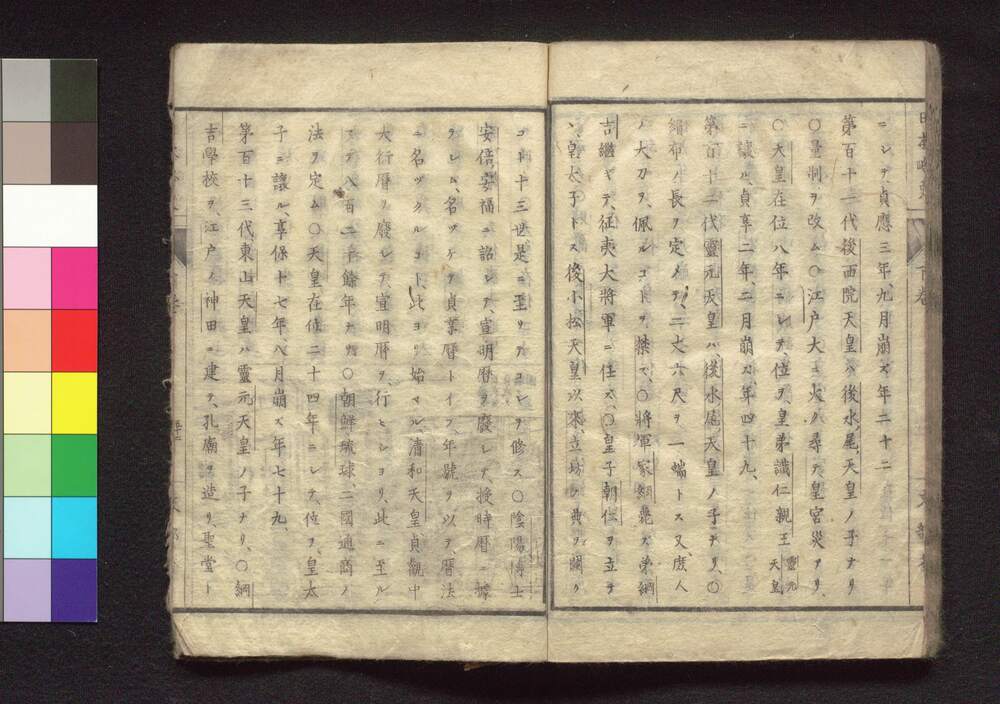 ニシテ貞應三年九月崩ス年二十二
第百十二代後西院天皇ハ後水尾天皇ノ子ナリ
〇量制ヲ改ム〇江戸大ニ火ク尋テ皇宮災アリ、
〇天皇在位八年ニシテ、位ヲ皇弟識仁親王靈元天皇
ニ讓ル、貞享二年、二月崩ス、年四十九、
第百十二代靈元天皇ハ、後水尾天皇ノ子ナリ、〇
絹布ノ長ヲ定メテ、二丈六尺ヲ一端トス又庶人
ノ大刀ヲ佩ルコトヲ禁ス、〇將軍家綱薨ズ弟綱
吉繼ギテ、征夷大將軍ニ任ス、〇皇子朝仁ヲ立テ
ヽ皇太子トス後小松天皇以來、立坊ノ費ヲ闕ク
コト十三世是ニ至リテコレヲ修ス〇陰陽博士
安倍安福ニ詔シテ、宣明曆ヲ廢シテ、授時曆ニ據
ラシム、名ツケテ貞享曆トイフ年號ヲ以テ、曆法
ニ名ヅクルコト、此ヨリ始マル、清和天皇貞觀中
大行曆ヲ廢シテ宣明曆ヲ、行ヒシヨリ、此ニ至ル
マデ八百二十餘年ナリ〇朝鮮琉球、二國通商ノ
法ヲ定ム〇天皇在位二十四年ニシテ、位ヲ、皇太
子ニ讓ル、享保十七年、八月崩ス年七十九、
第百十三代東山天皇ハ靈元天皇ノ子ナリ、〇綱
吉學校ヲ、江戸ノ神田ニ建テ、孔廟ヲ造リ、聖堂ト